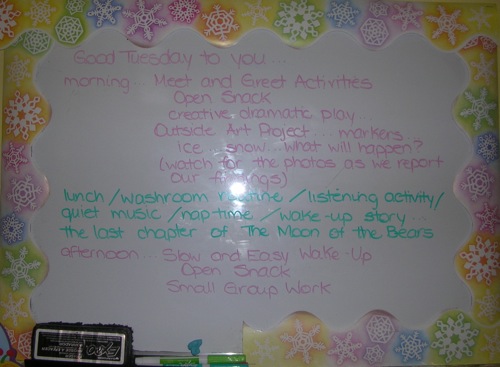 Good Tuesday to you...
morning... Meet and Greet Activities
Open Snack
creative dramatic play...
Outside Art Project... markers...
ice... snow... what will happen?
(watch for the photos as we report
our findings)
lunch/washroom routine/listening activity/
quiet music/nap time/wake-up story...
the last chapter of The Moon of the Bears
afternoon... Slow and Easy Wake-Up
Open Snack
Small Group Work
EXPO